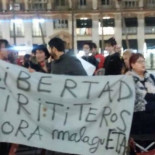 LIBERTAD
TIRITITEROS
ORA malagueTA